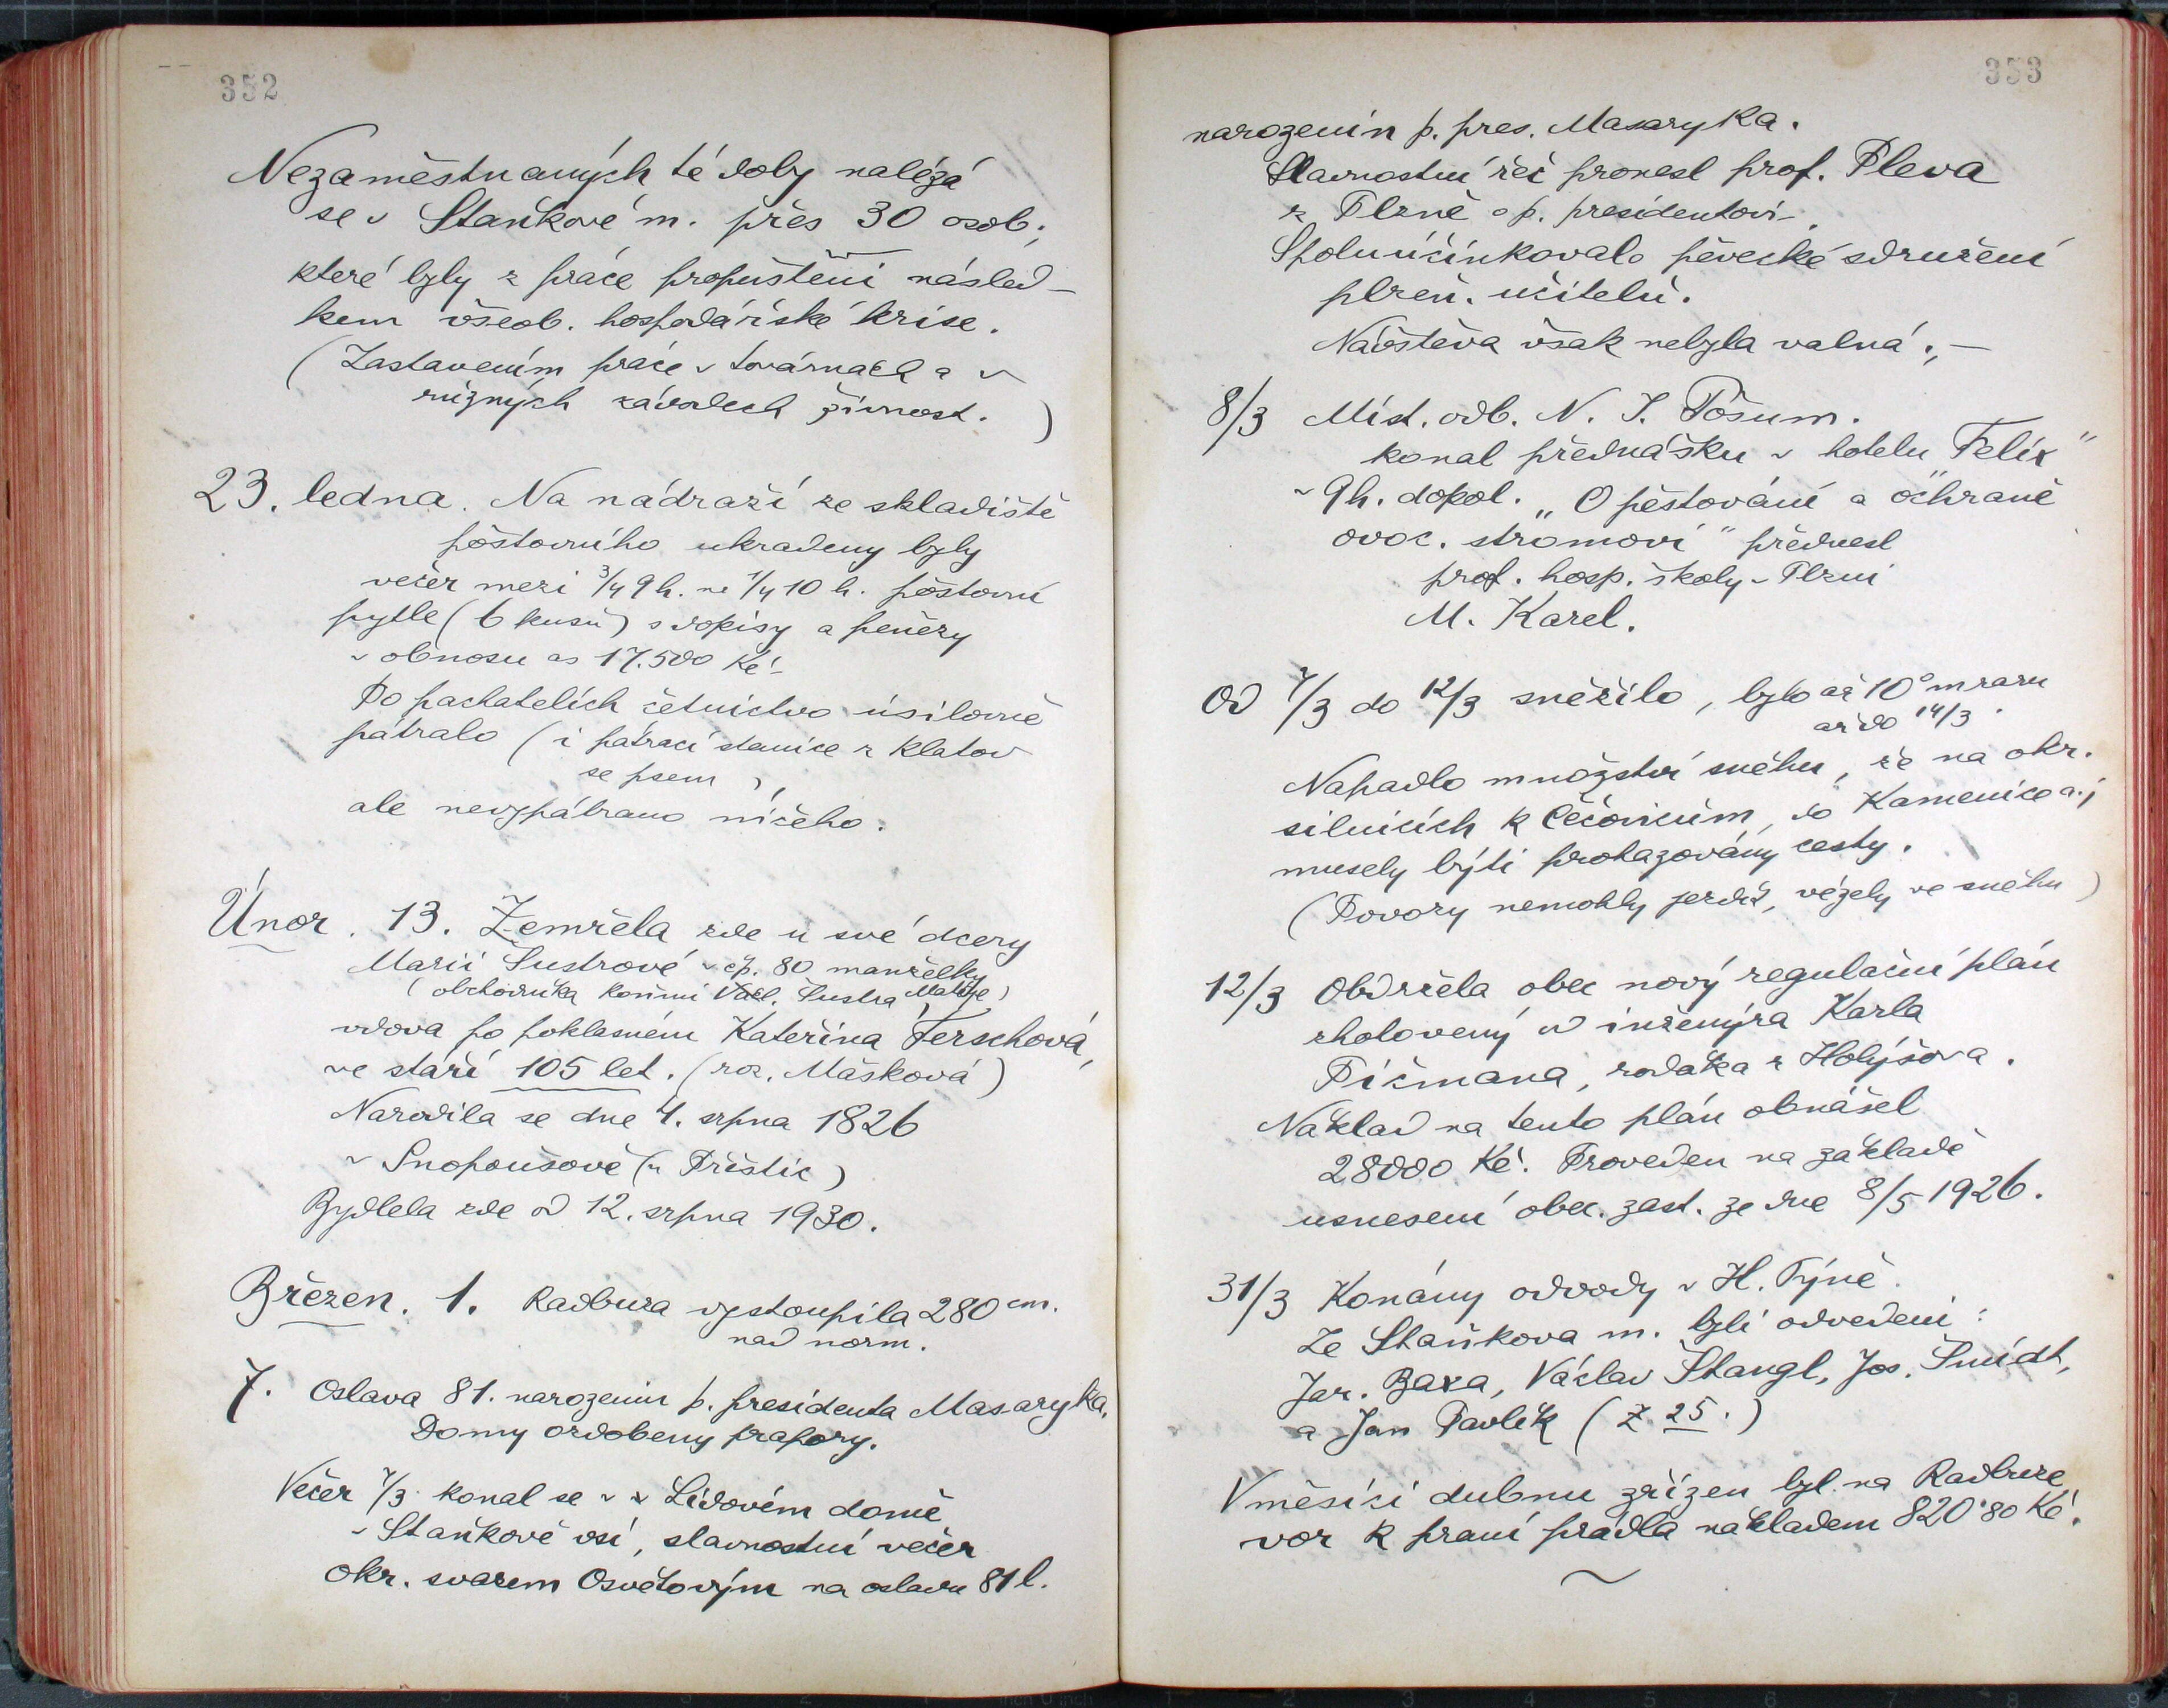 352
Nezaměstnaných té doby nalézá
se v Staňkově m. přes 30 osob;
které byly z práce propuštěni násled-
kem všeob. hospodářské krise.
(Zastavením práce v továrnách a v
různých závodech živnost. )
23. ledna. Na nádraží ze skladiště
poštovního ukradeny byly
večer mezi 3/4 9 h. na 1/4 10 h. poštovní
pytle (6 kusů) s dopisy a penězy
v obnosu as 17.500 Kč.
Po pachatelích četnictvo úsilovně
pátralo (i pátrací stanice z Klatov
se psem),
ale nevypátrano ničeho.
Únor. 13. Zemřela zde u své dcery
Marii Šustrové v čp. 80 manželky
(obchodníka koňmi Václ. Šustra Matěje)
vdova po poklasném Kateřina Ferschová,
ve stáří 105 let. (roz. Mašková)
Narodila se dne 4. srpna 1826
v Snopoušově (u Přeštic)
Bydlela zde od 12. srpna 1930.
Březen. 1. Radbuza vystoupila 280 cm.
nad norm.
7. Oslava 81. narozenin p. presidenta Masaryka.
Domy ozdobeny prapory.
Večer 7/3 konal se v Lidovém domě
v Staňkově vsi, slavnostní večer
okr. svazem Osvětovým na oslavu 81 l.
353
narozenin p. pres. Masaryka.
Slavnostní řeč pronesl prof. Pleva
z Plzně o p. presidentovi.
Spoluúčinkovalo pěvecké sdružení
plzeň. učitelů.
Návštěva však nebyla valná.,-
8/3 Míst. odb. N. J. Pošum.
konal přednášku v hotelu „Felix"
v 9h. dopol. „O pěstování a ochraně
ovoc. stromoví" přednesl
prof. hosp. školy v Plzni
M. Karel.
Od 7/3 do 12/3 sněžilo, bylo až 10° mrazu
až do 14/3.
Napadlo množství sněhu, že na okr.
silnicích k Čečovicům, do Kamenice a.j
musely býti prohazovány cesty.
(Povozy nemohly jezdit, vězely ve sněhu)
12/3 Obdržela obec nový regulační plán
zhotovený od inženýra Karla
Pičmana, rodáka z Holýšova.
Náklad na tento plán obnášel
28000 Kč. Proveden na základě
usnesení obec. zast. ze dne 8/5 1926.
31/3 Konány odvody v H. Týně.
Ze Staňkova m. byli odvedeni:
Jar. Baxa, Václav Štangl, Jos. Šmídt,
a Jan Pavlík (Z 25.)
V měsíci dubnu zřízen byl na Radbuze
vor k praní prádla nákladem 820·80 Kč.